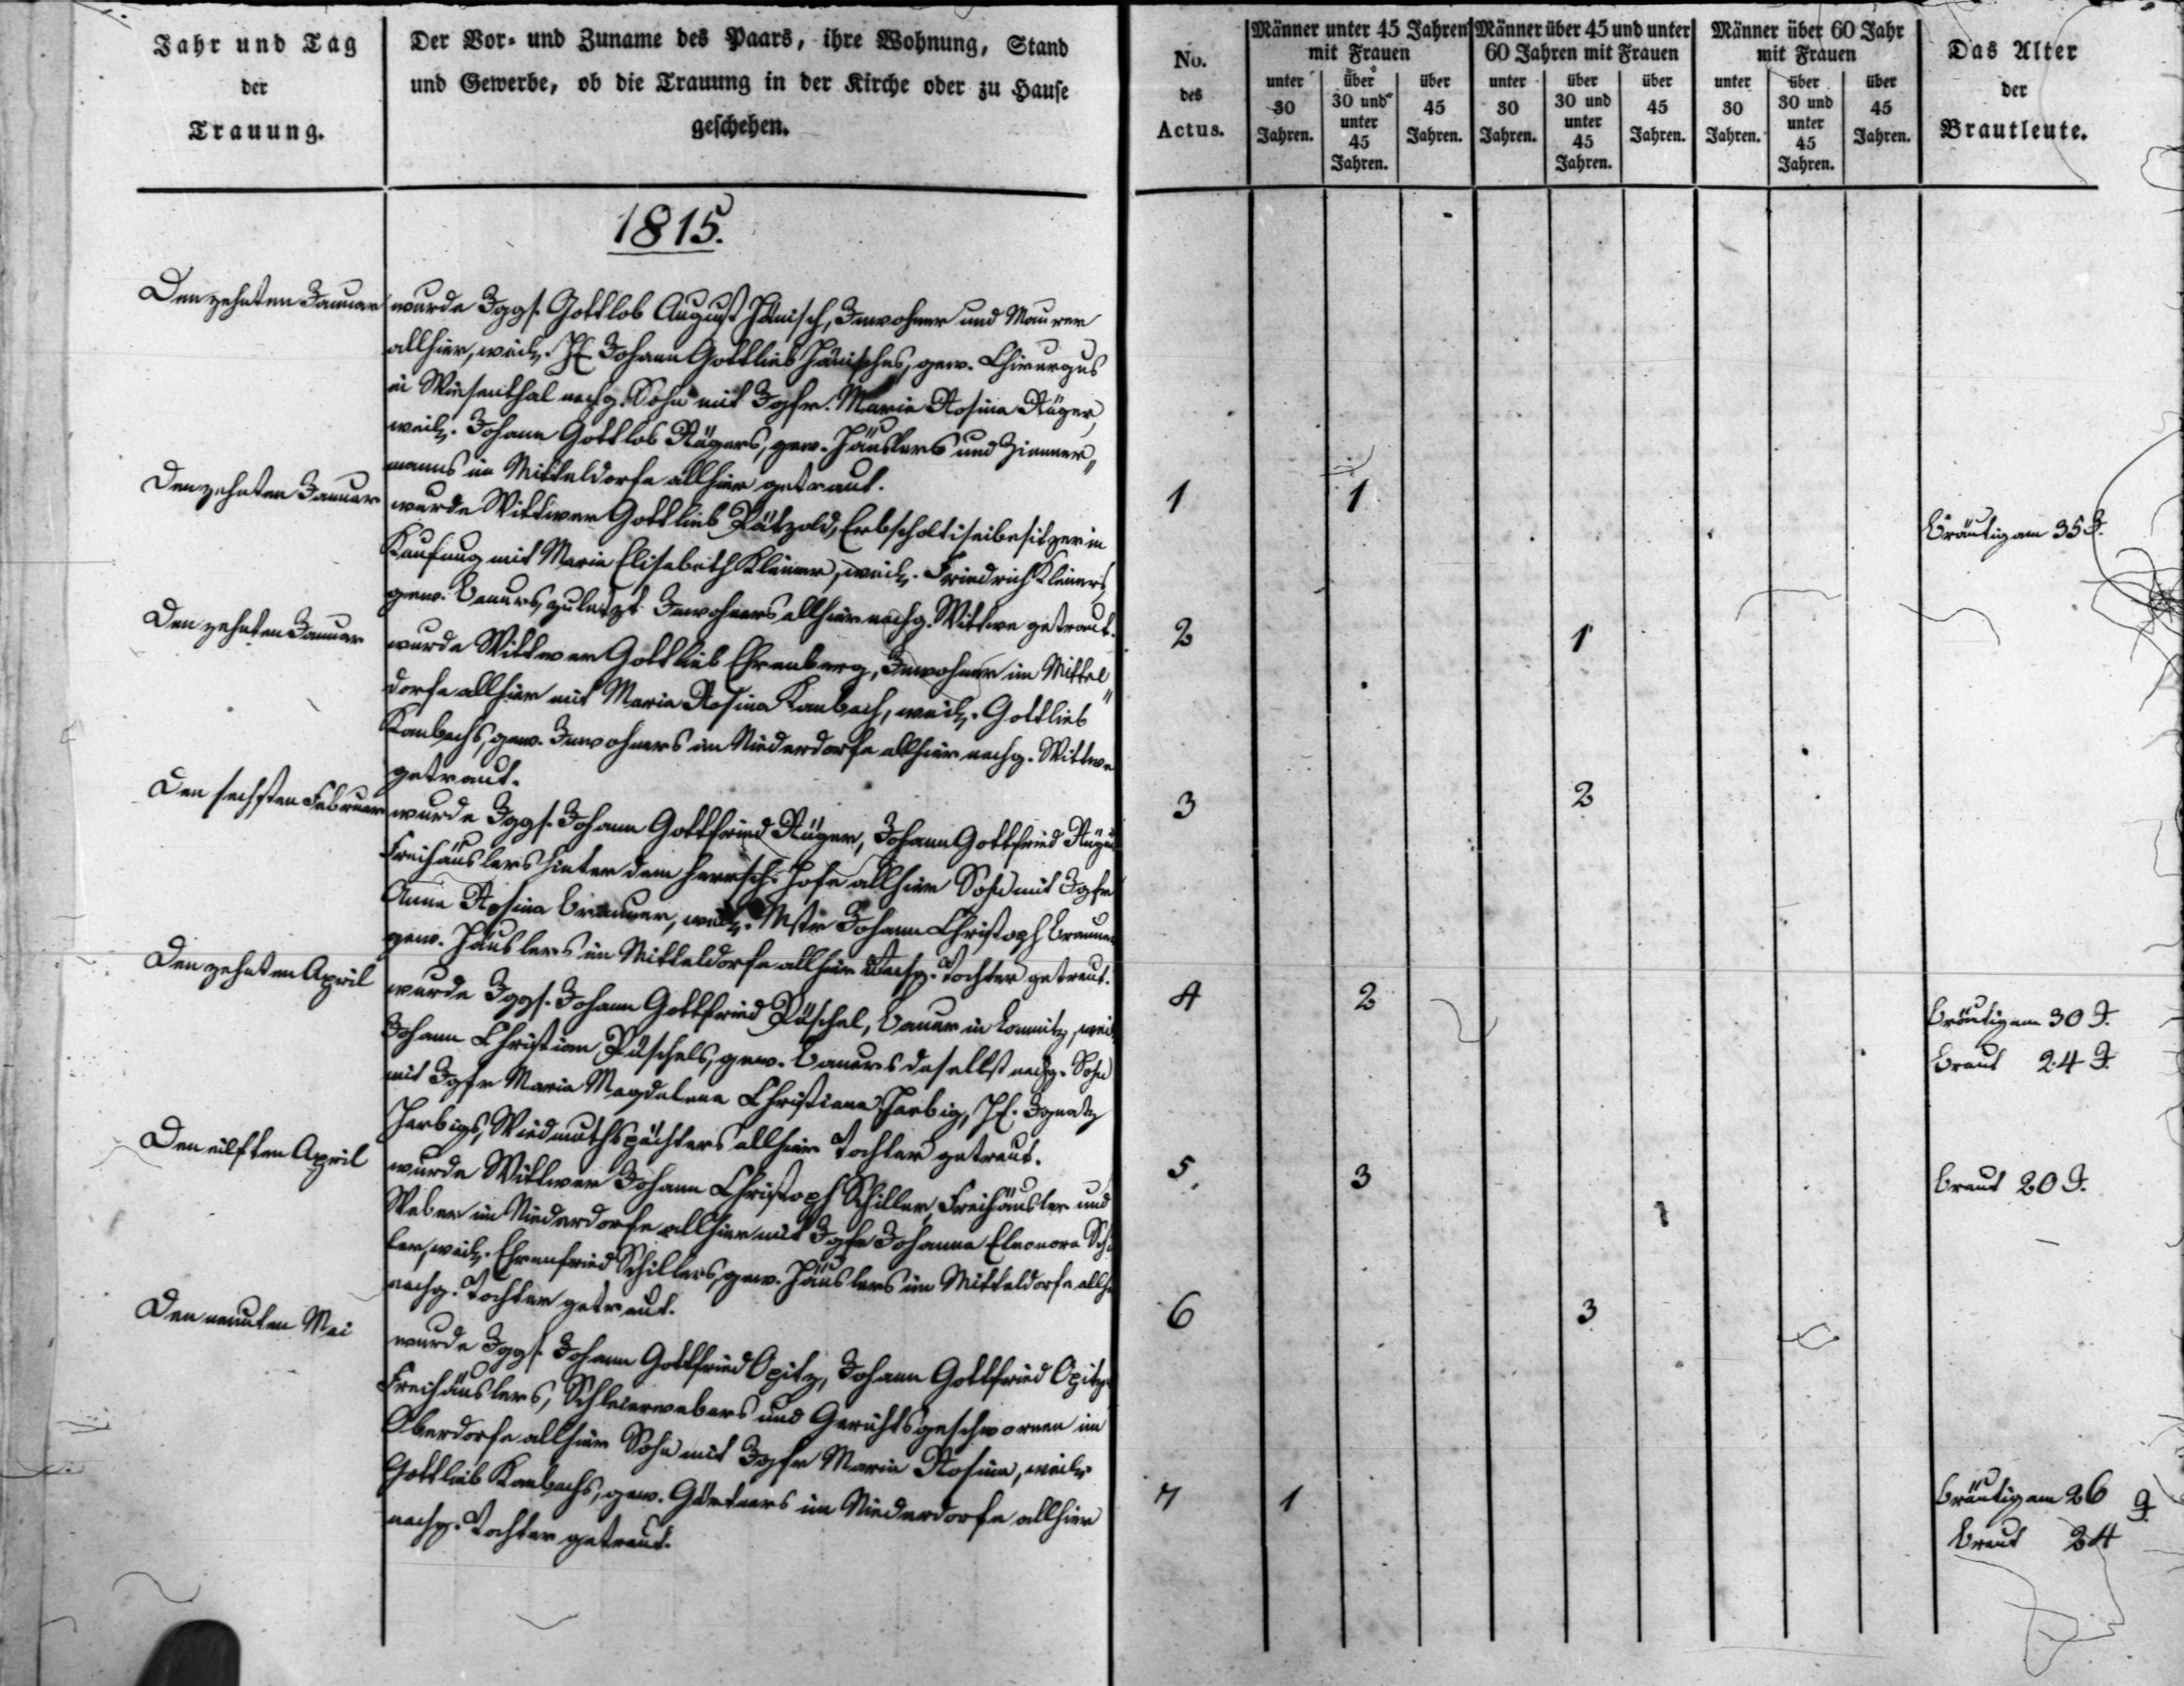 Jahr und Tag
der
Trauung.
Der Vor- und Zuname des Paars, ihre Wohnung, Stand
und Gewerbe, ob die Trauung in der Kirche oder zu Hause
geschehen.
No.
des
Actus.
Männer unter 45 Jahren
mit Frauen
unter
30
Jahren.
über
30 und
unter
45
Jahren.
über
45
Jahren.
Männer über 45 und unter
60 Jahren mit Frauen
unter
30
Jahren.
über
30 und
unter
45
Jahren.
über
45
Jahren.
Männer über 60 Jahr
mit Frauen
unter
30
Jahren.
über
30 und
unter
45
Jahren.
über
45
Jahren.
Das Alter
der
Brautleute.
1815.
Den zehnten Januar
wurde Jggs. Gottlob August Hänisch, Inwohner und Maurer
allhier, weil. H. Johann Gottlieb Hänisches, gew. Chirurgus
in Wiesenthal nachg. Sohn mit Jgfr. Maria Rosina Rüger,
weil. Johann Gottlob Rügers, gew. Häuslers und Zimmer„
manns im Mitteldorfe allhier getraut.
1 1 Bräutigam 35 J.
Den zehnten Januar
wurde Wittwer Gottlieb Pätzold, Erbscholtiseibesitzer in
Kaufung mit Maria Elisabeth Kleiner, weil. Friedrich Kleiners
gew. Bauers, zuletzt Inwohners allhier nachg. Wittwe getraut.
2 1
Den zehnten Januar
wurde Wittwer Gottlieb Ehrenberg, Inwohner im Mittel„
dorfe allhier mit Maria Rosina Kambach, weil. Gottlieb
Kambachs, gew. Inwohners im Niederdorfe allhier nachg. Wittwe
getraut.
3 2
Den sechsten Februar
wurde Jggs. Johann Gottfried Rüger, Johann Gottfried
Freihäuslers hinter dem herrsch. Hofe allhier Sohn mit Jgfr
Anna Rosina Brauner, weil. Mstr Johann Christoph
gew. Häuslers im Mitteldorfe allhier nachg. Tochter getraut.
4 2 Bräutigam 30 J.
Braut 24 J.
Den zehnten April
wurde Jggs. Johann Gottfried Püschel, Bauer in Lomnitz, weil
Johann Christian Püschels, gew. Bauers daselbst nachg. Sohn
mit Jgfr Maria Magdalena Christiana Herbig, H. Ignatz
Herbigs, Wiedmuthspächters allhier Tochter getraut.
5. 3 Braut 20 J.
Den eilften April
wurde Wittwer Johann Christoph Schiller, Freihäusler und
Weber im Niederdorfe allhier mit Jgfr Johanna Eleonora
ler, weil. Ehrenfried Schillers, gew. Häuslers im Mitteldorfe
nachg. Tochter getraut.
6 3
Den neunten Mai
wurde Jggs. Johann Gottfried Opitz, Johann Gottfried Opitz
Freihäuslers, Schleierwebers und Gerichtsgeschwornen im
Oberdorfe allhier Sohn mit Jgfr Maria Rosina, weil.
Gottlieb Kambachs, gew. Gärtners im Niederdorfe allhier
nachg. Tochter getraut.
7 1 Bräutigam 26 J.
Braut 24